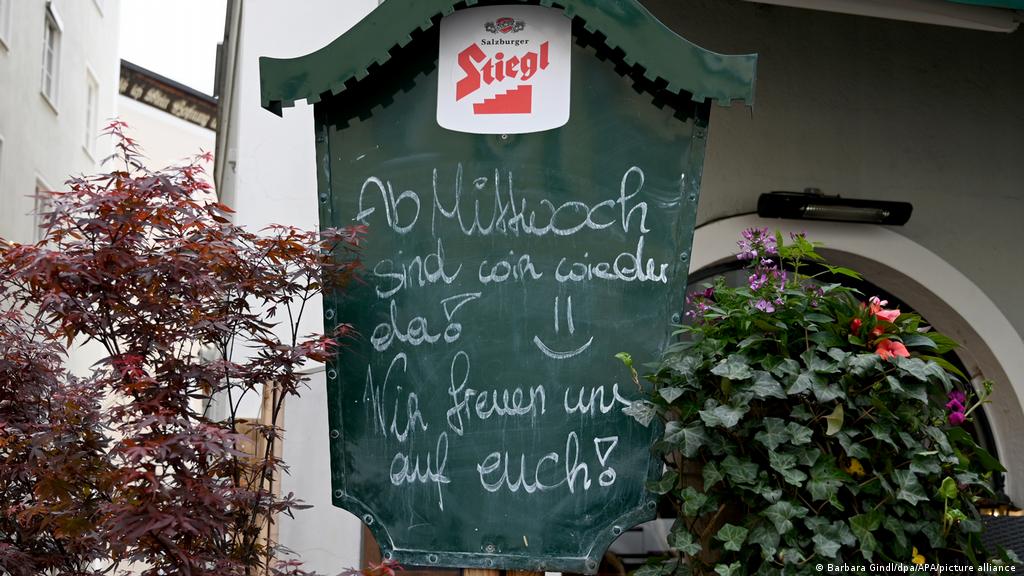 Salzburger
Stiegl
Ab Mittwoch
sind wir wieder
da!
Wir freuen uns
auf euch!
© Barbara Gindl/dpa/APA/picture alliance